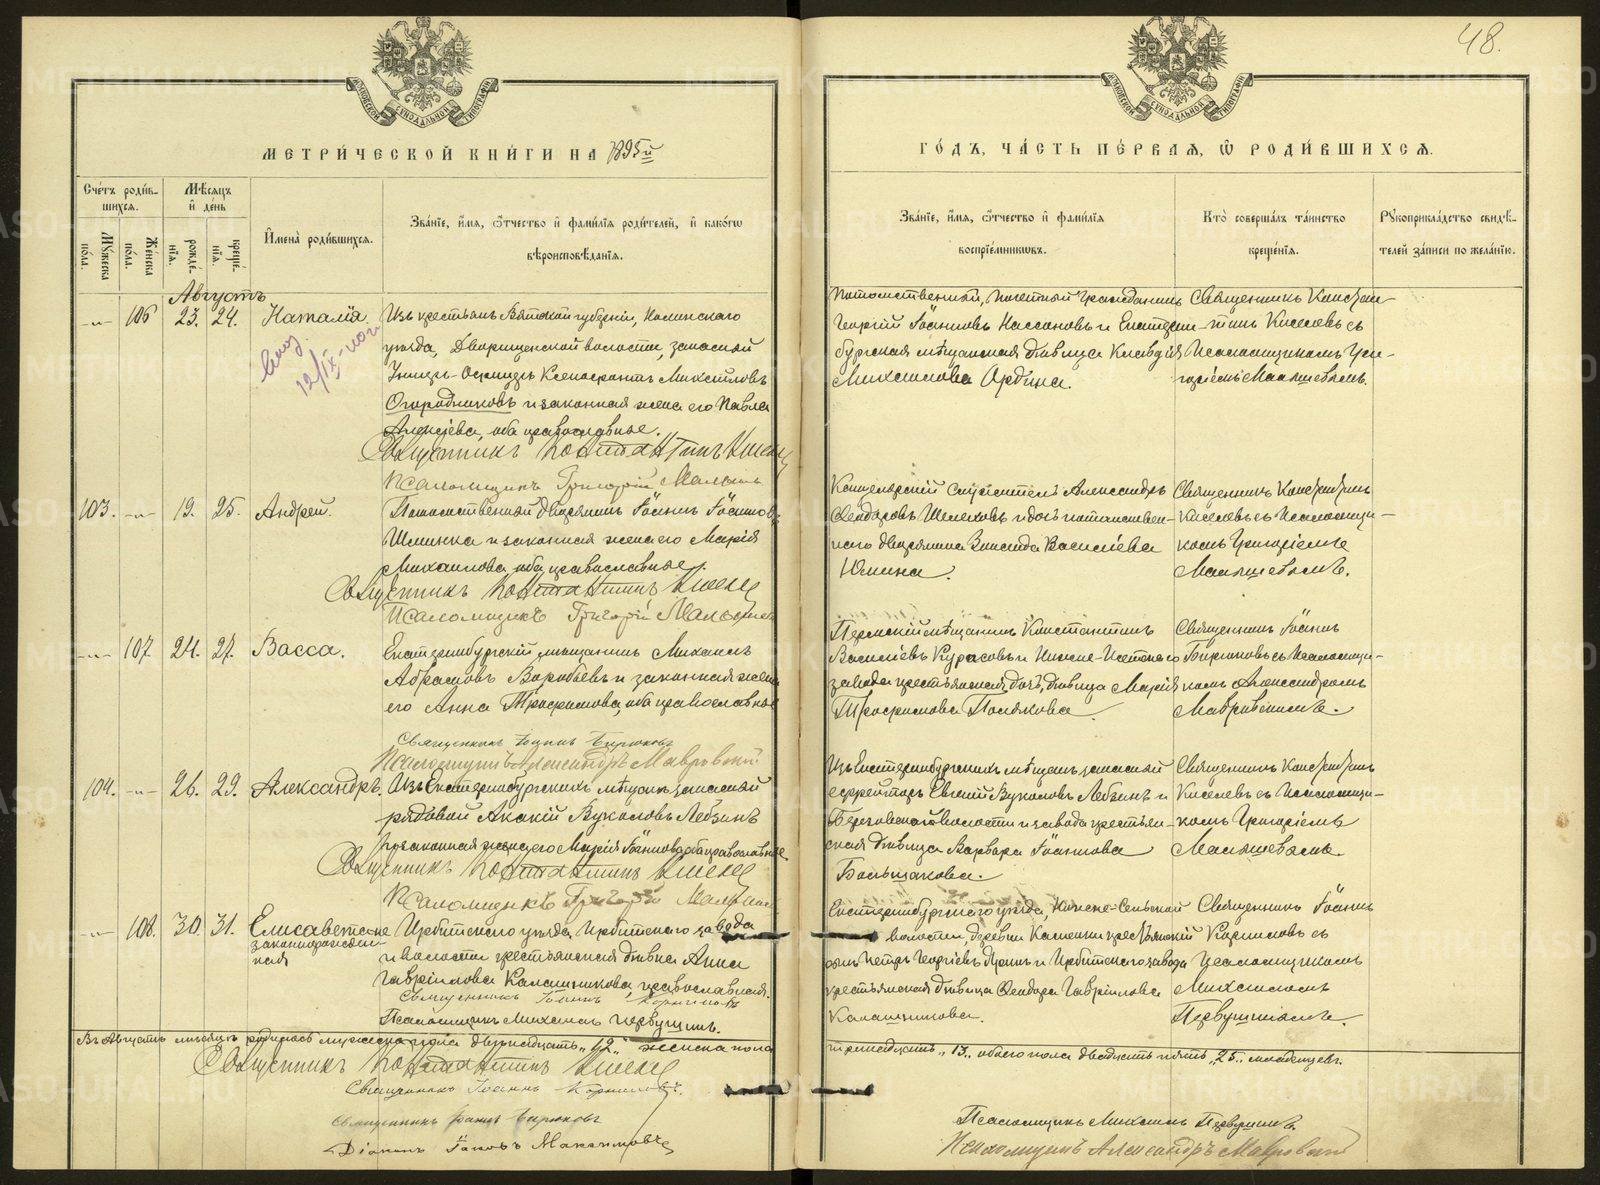 48.
МОСКОВСКОЙ СѴНОДАЛЬНОЙ ТИПОГРАФІИ
МОСКОВСКОЙ СѴНОДАЛЬНОЙ ТИПОГРАФІИ
МЕТРИ́ЧЕСКОЙ КНИ́ГИ НА 1895й
ГО́ДЪ, ЧА́СТЬ ПЕ́РВАЯ, Ѡ РОДИ́ВШИХСЯ.
Сче́тъ роди́в-
шихся.
Му́жеска по́ла.
Же́нска по́ла.
Мѣ́сяцъ
и де́нь
рожде́-
нїя.
креще́-
нїя.
И́мена роди́вшихся.
Зва́нїе, и́мя, ѻ́тчество и фами́лїя роди́телей, и како́гѡ
вѣроисповѣ́данїя.
Зва́нїе, и́мя, ѻ́тчество и фами́лїя
воспрїе́мниковъ.
Кто̀ соверша́лъ та́инство
креще́нїя.
Рꙋкоприкла́дство свидѣ́-
телей за́писи по жела́нїю.
Августъ
-„- 106 23. 24. Наталія.
Изъ крестьянъ Вятской губерніи, Нолинскаго
уѣзда, Дворищенской волости, запасный
Унтеръ-Офицеръ Ксенофонтъ Михайловъ
Огородниковъ и законная жена его Павла
Алексѣева, оба православные.
Священникъ Константинъ
Псаломщикъ Григорій
Потомственный, почетный гражданинъ
Георгій Іоанновъ и Екатерин-
бургская мѣщанская дѣвица Клавдія
Михаилова Ордина.
Священникъ Констан-
тинъ Киселевъ съ
Псаломщикомъ Гри-
горіемъ Малышевымъ.
103. -„- 19. 25. Андрей.
Потомственный дворянинъ Іоаннъ Іоанновъ
и законная жена его Марія
Михаилова, оба православные.
Священникъ Константинъ
Псаломщикъ Григорій
Канцелярскій служитель Александръ
Ѳеодоровъ и дочь потомствен-
наго дворянина Зинаида Васильева
Юшина.
Священникъ Константинъ
Киселевъ съ Псаломщи-
комъ Григоріемъ
Малышевымъ.
-„- 107. 24. 27. Васса.
Екатеринбургскій мѣщанинъ Михаилъ
Абрамовъ Воробьевъ и законная жена
его Анна Трофимова, оба православные
Священникъ Іоаннъ Бирюковъ
Псаломщикъ Александръ Мавровскій
Пермскій мѣщанинъ Константинъ
Васильевъ Курасовъ и Нижне-Исетскаго
завода крестьянская дочь, дѣвица Марія
Трофимова Полякова.
Священникъ Іоаннъ
Бирюковъ съ Псаломщи-
комъ Александромъ
Мавровскимъ.
104. -„- 26. 29. Александръ.
Изъ Екатеринбургскихъ мѣщанъ запасный
рядовой Акакій Вуколовъ Лебзинъ
и законная жена его Марія Іоаннова, оба православные
Священникъ Константинъ
Псаломщикъ Григорій
Изъ Екатеринбургскихъ мѣщанъ запасный
ефрейторъ Евгеній Вуколовъ Лебзинъ и
Березовской волости и завода крестьян-
ская дѣвица Варвара Іоаннова
Большакова.
Священникъ Константинъ
Киселевъ съ Псаломщи-
комъ Григоріемъ
Малышевымъ.
-„- 108. 30. 31. Елисавета не
законнорожден-
ная
Ирбитскаго уѣзда, Ирбитскаго завода
и волости крестьянская дѣвка Анна
Гавріилова Калашникова, православная.
Священникъ Іоаннъ Корниловъ
Псаломщикъ Михаилъ Первушинъ.
Екатеринбургскаго уѣзда,
волости, деревни крестьянскій
сынъ Петръ Георгіевъ и Ирбитскаго завода
крестьянская дѣвица Ѳеодора Гавріилова
Калашникова.
Священникъ Іоаннъ
Корниловъ съ
Псаломщикомъ
Михаиломъ
Первушинымъ.
Въ Августѣ мѣсяцѣ родилось мужеска пола двѣнадцать „12„ женска пола
тринадцать „13„ обоего пола двадцать пять „25„ младенцевъ.
Священникъ Константинъ
Священникъ Іоаннъ Корниловъ.
Священникъ Іоаннъ Бирюковъ
Діаконъ Іаковъ Максимовъ
Псаломщикъ Михаилъ Первушинъ.
Псаломщикъ Александръ Мавровскій
METRIKI.GASO-URAL.RU